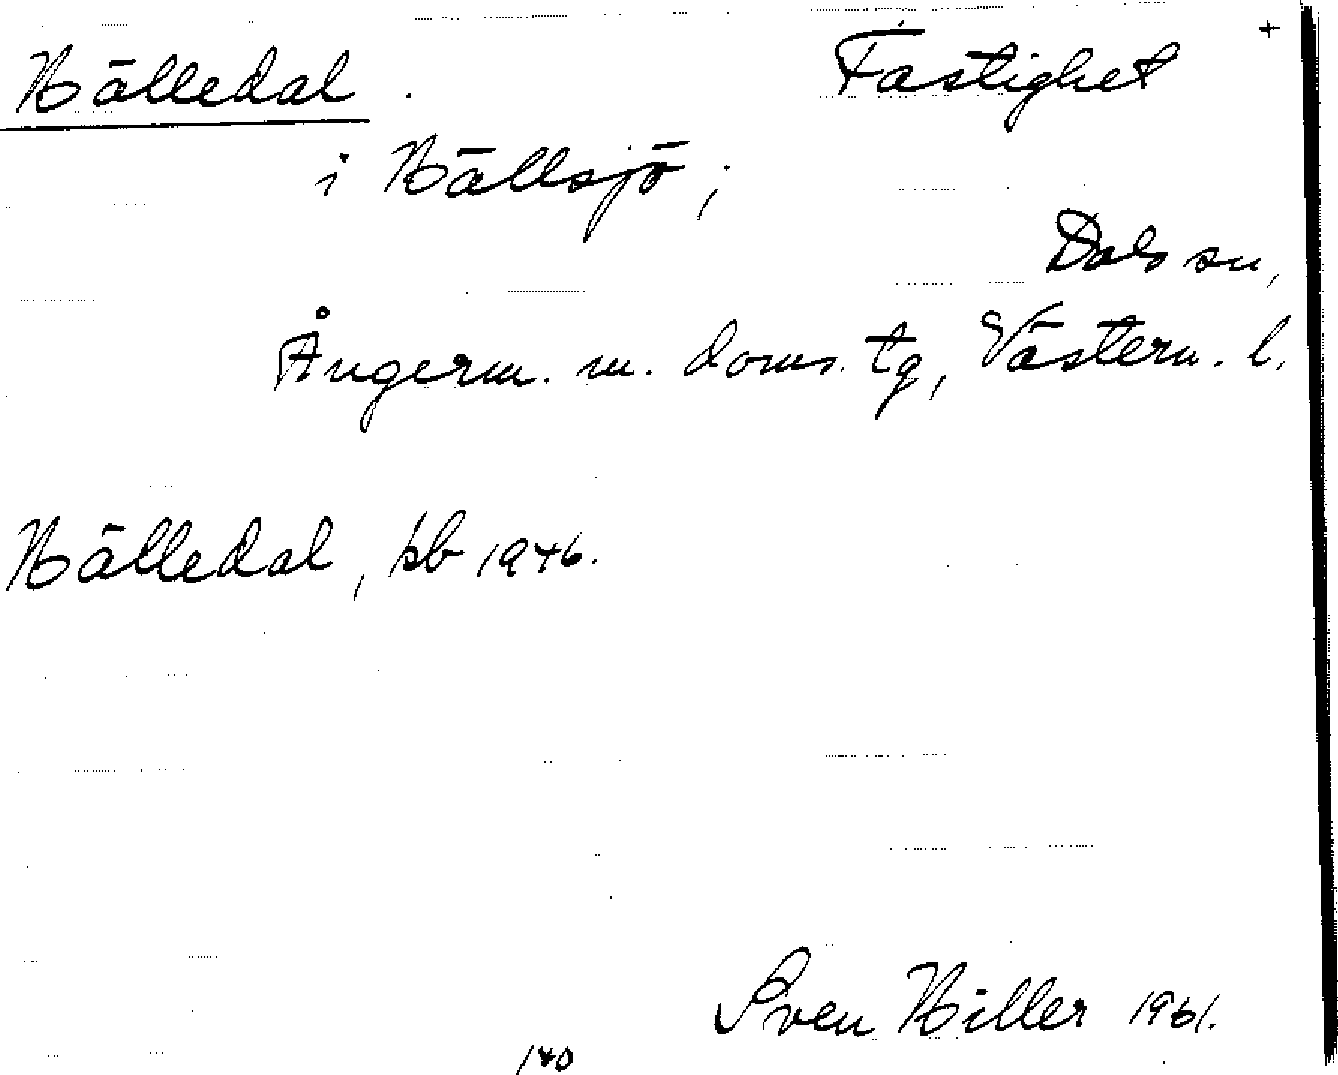 Hälledal. Fastighet +
i Hällsjö;
Dals sn,
Ångerm. m. doms. tg, Västern. l.
Hälledal, kb 1946.
Sven Hiller 1961.
140